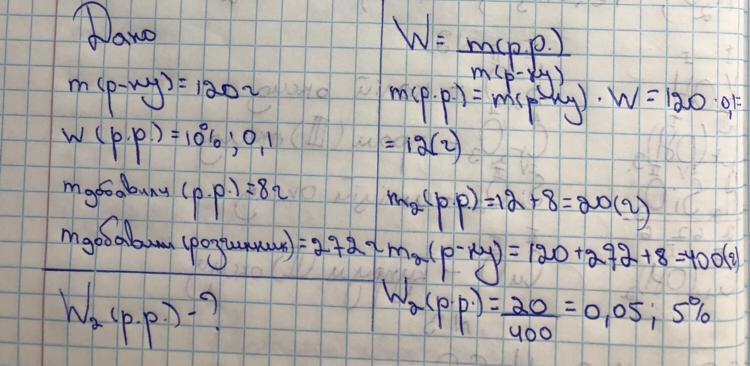 Дано
m(р-ну)=120г
W(р.р.)=10%; 0,1
mдобавили (р.р.)=8г
mдобавили(розчинник)=272г
W₂(р.р.)-?
W= m(р.р.)
m(р-ну)
m(р.р.)=m(р-ну)·W=120·0,1=
=12(г)
m₂(р.р)=12+8=20(г)
m₂(р-ну)=120+272+8=400(г)
W₂(р.р.)=20/400=0,05; 5%